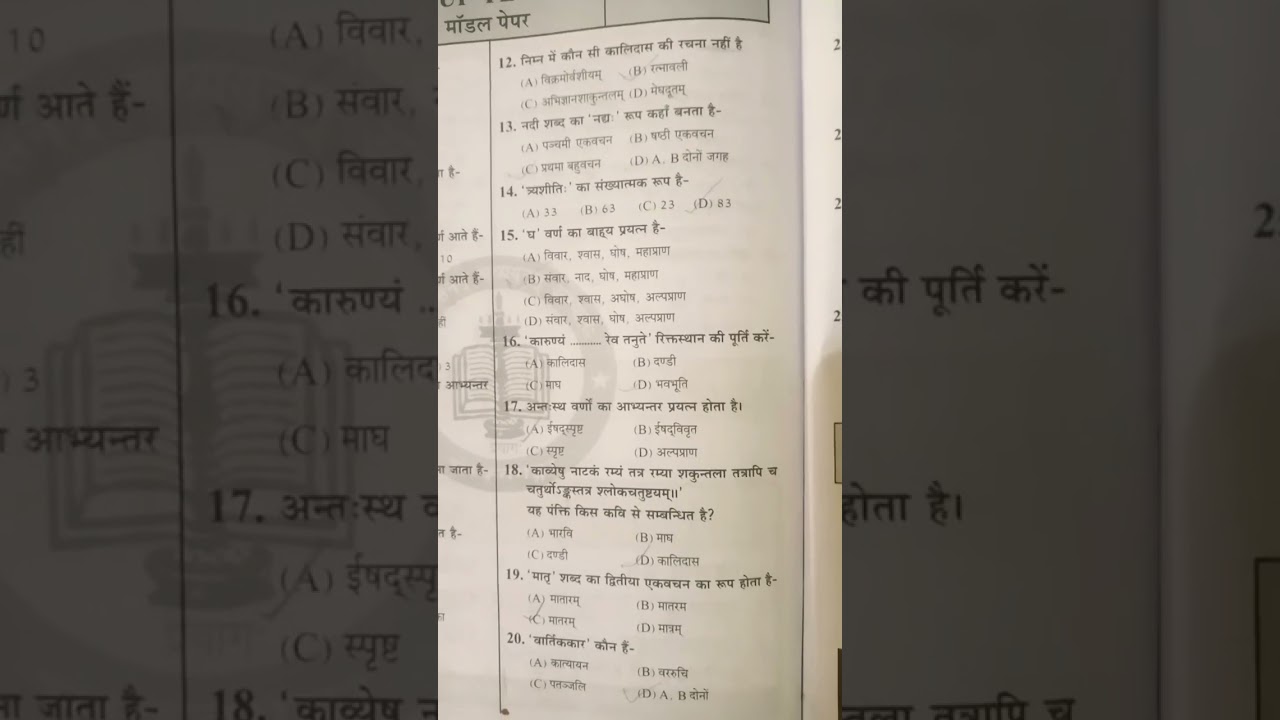 मॉडल पेपर
12. निम्न में कौन सी कालिदास की रचना नहीं है
(A) विक्रमोर्वशीयम् (B) रत्नावली
(C) अभिज्ञानशाकुन्तलम् (D) मेघदूतम्
13. नदी शब्द का 'नद्यः' रूप कहाँ बनता है-
(A) पञ्चमी एकवचन (B) षष्ठी एकवचन
(C) प्रथमा बहुवचन (D) A, B दोनों जगह
14. 'त्र्यशीतिः' का संख्यात्मक रूप है-
(A) 33 (B) 63 (C) 23 (D) 83
15. 'घ' वर्ण का बाह्य प्रयत्न है-
(A) विवार, श्वास, घोष, महाप्राण
(B) संवार, नाद, घोष, महाप्राण
(C) विवार, श्वास, अघोष, अल्पप्राण
(D) संवार, श्वास, घोष, अल्पप्राण
16. 'कारुण्यं ........... रेव तनुते' रिक्तस्थान की पूर्ति करें-
(A) कालिदास (B) दण्डी
(C) माघ (D) भवभूति
17. अन्तःस्थ वर्णों का आभ्यन्तर प्रयत्न होता है।
(A) ईषद्स्पृष्ट (B) ईषद्विवृत
(C) स्पृष्ट (D) अल्पप्राण
18. 'काव्येषु नाटकं रम्यं तत्र रम्या शकुन्तला तत्रापि च
चतुर्थोऽङ्कस्तत्र श्लोकचतुष्टयम्॥'
यह पंक्ति किस कवि से सम्बन्धित है?
(A) भारवि (B) माघ
(C) दण्डी (D) कालिदास
19. 'मातृ' शब्द का द्वितीया एकवचन का रूप होता है-
(A) मातारम् (B) मातरम
(C) मातरम् (D) मात्रम्
20. 'वार्तिककार' कौन हैं-
(A) कात्यायन (B) वररुचि
(C) पतञ्जलि (D) A, B दोनों